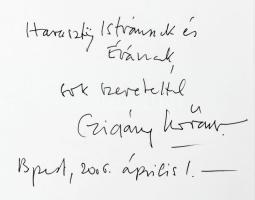 Haraszty Istvánnak és
Évának,
sok szeretettel
Czigány
Bpest, 2006. április 1.